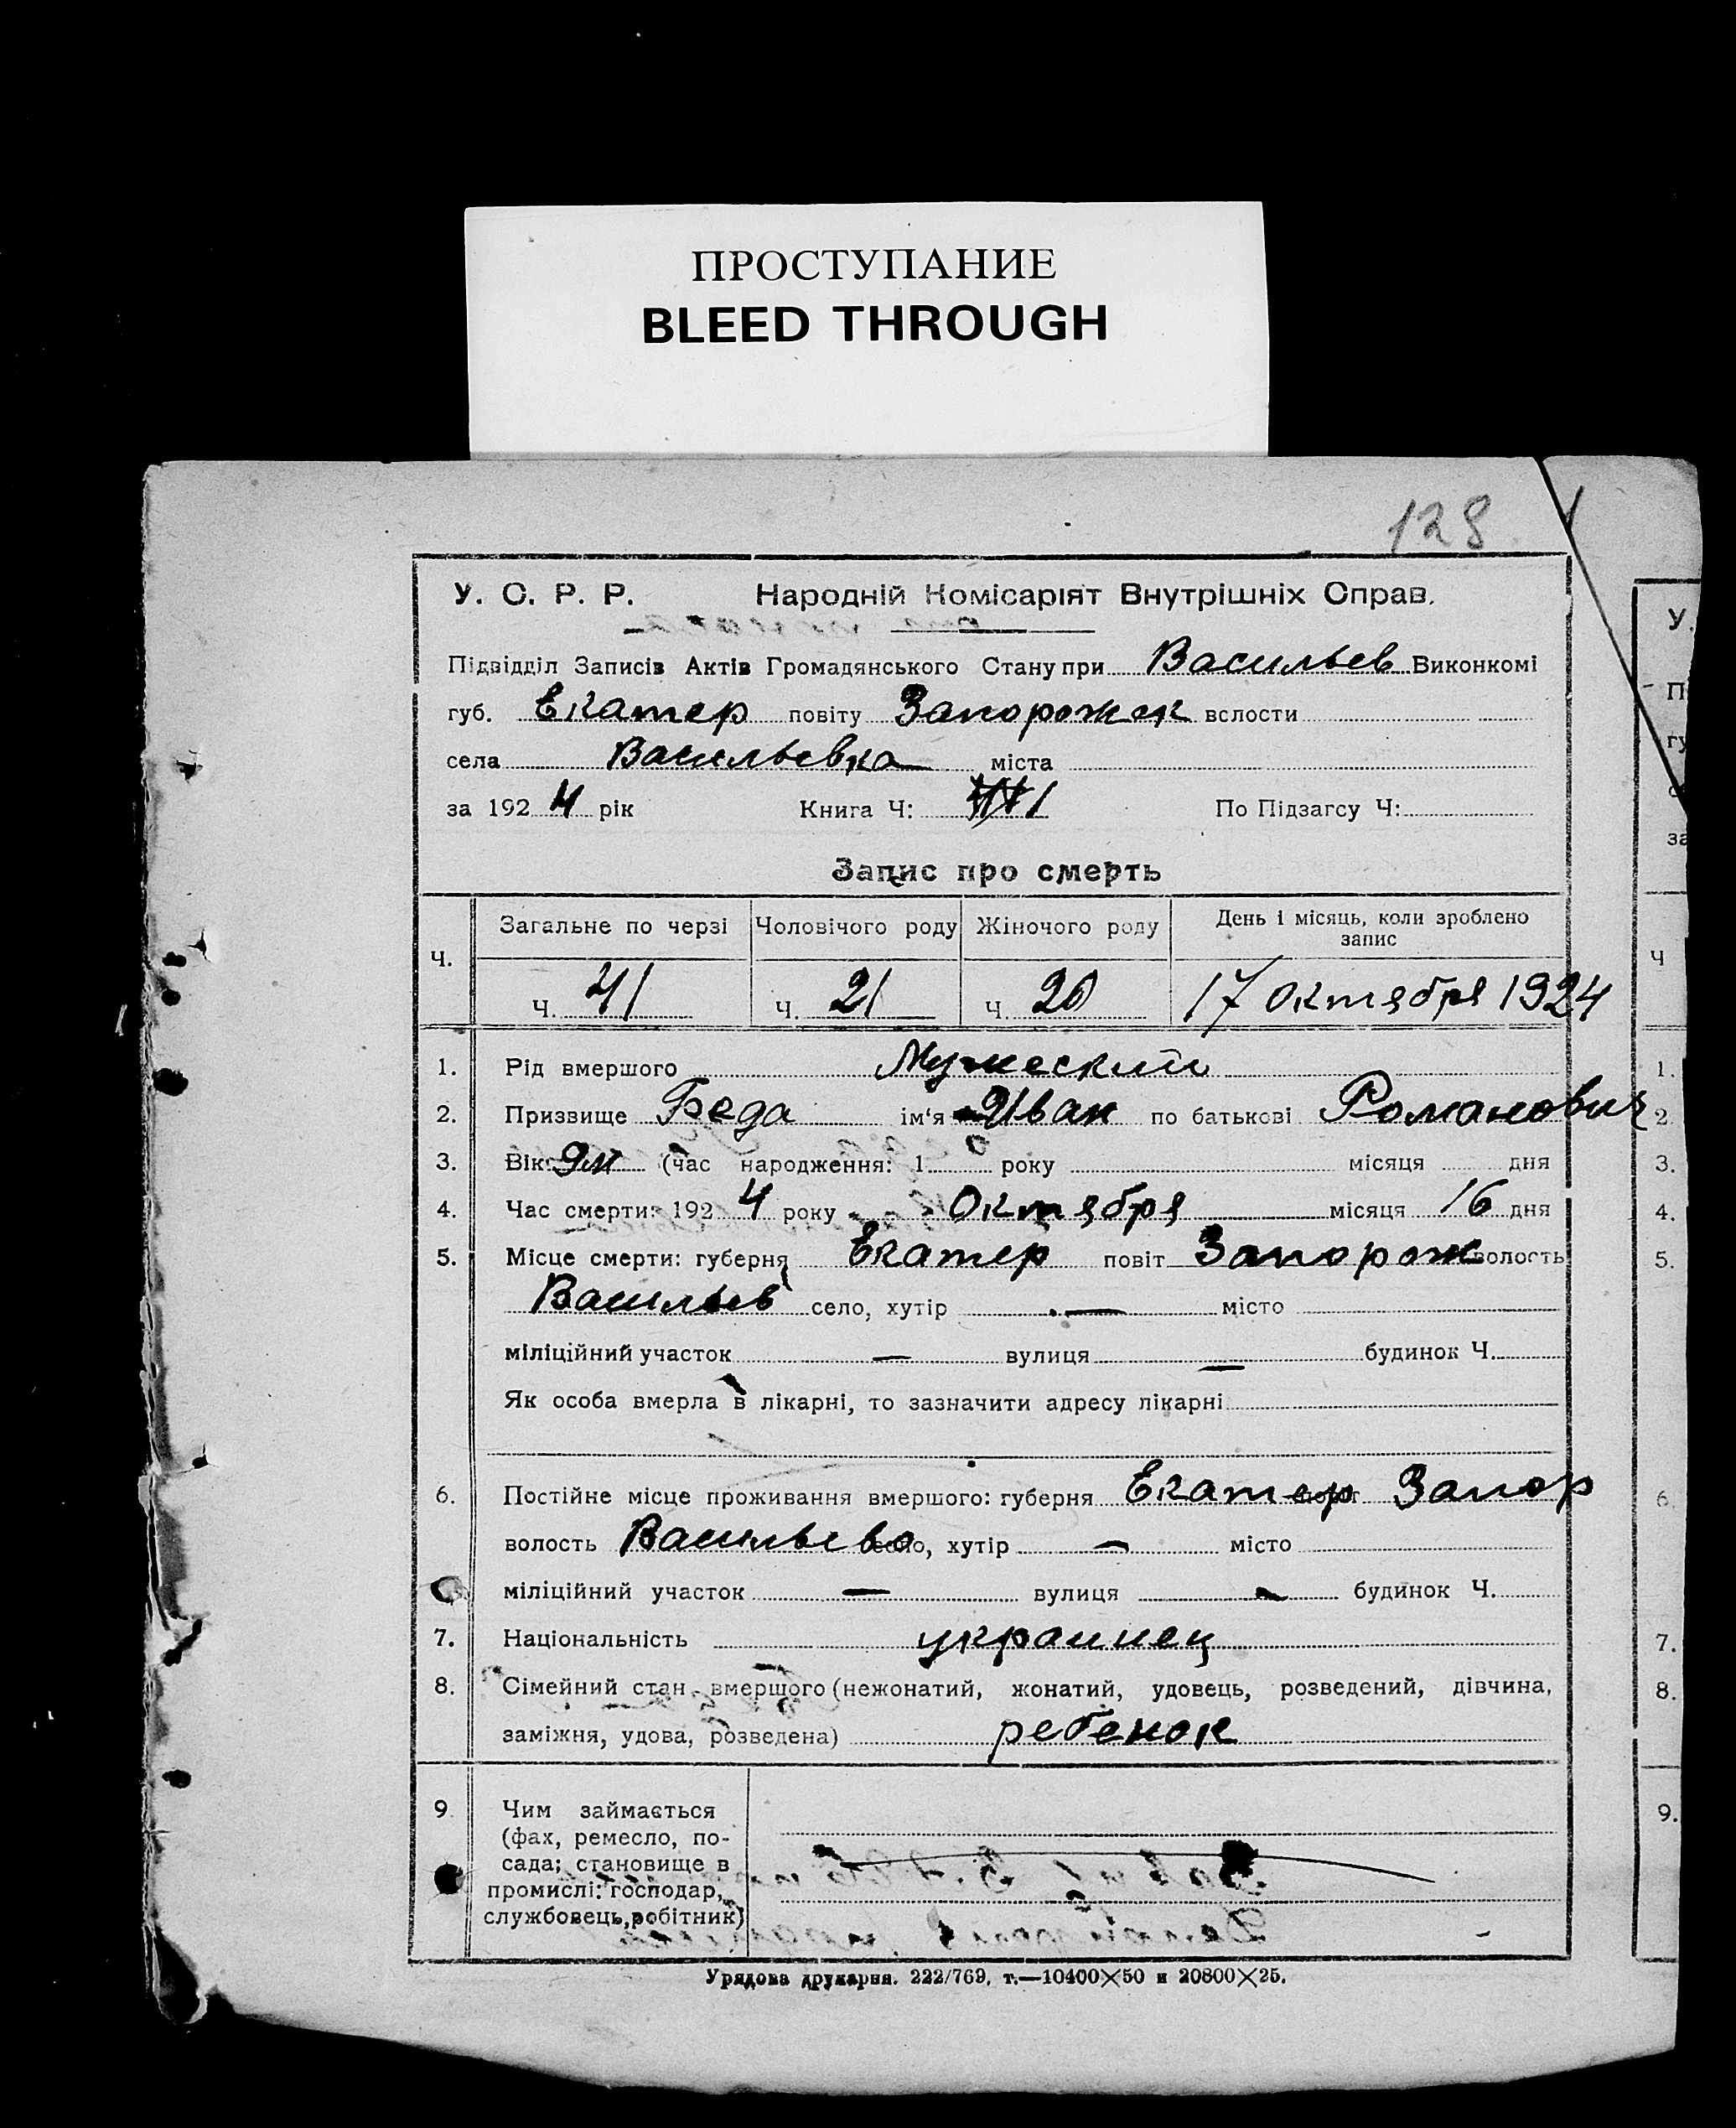 ПРОСТУПАНИЕ
BLEED THROUGH
128
У. С. Р. Р. Народній Комісаріят Внутрішніх Справ.
Підвідділ Записів Актів Громадянського Стану при Васильев Виконкомі
губ. Екатер повіту Запорожск вслости
села Васильевка міста
за 1924 рік Книга Ч: 1 По Підзагсу Ч:
Запис про смерть
Ч. Загальне по черзі Чоловічого роду Жіночого роду День і місяць, коли зроблено
запис
Ч. 41 Ч. 21 Ч. 20 17 Октября 1924
1. Рід вмершого Мужеский
2. Призвище Беда ім‘я Иван по батькові Романович
3. Вік: 9м (час народження: 1 року місяця дня
4. Час смерти: 1924 року Октября місяця 16 дня
5. Місце смерти: губерня Екатер повіт Запорож волость
Васильев село, хутір — місто
міліційний участок — вулиця — будинок Ч.
Як особа вмерла в лікарні, то зазначити адресу лікарні
6. Постійне місце проживання вмершого: губерня Екатер повіт Запор
волость Васильево село, хутір — місто
міліційний участок — вулиця — будинок Ч.
7. Національність украинец
8. Сімейний стан вмершого (нежонатий, жонатий, удовець, розведений, дівчина,
заміжня, удова, розведена) ребенок
9. Чим займається
(фах, ремесло, по-
сада; становище в
промислі: господар,
службовець, робітник)
Урядова друкарня. 222/769, т.—10400×50 и 20800×25.
У.
П
гу
с
за
Ч
1.
2
3.
4.
5.
6.
7.
8.
9.